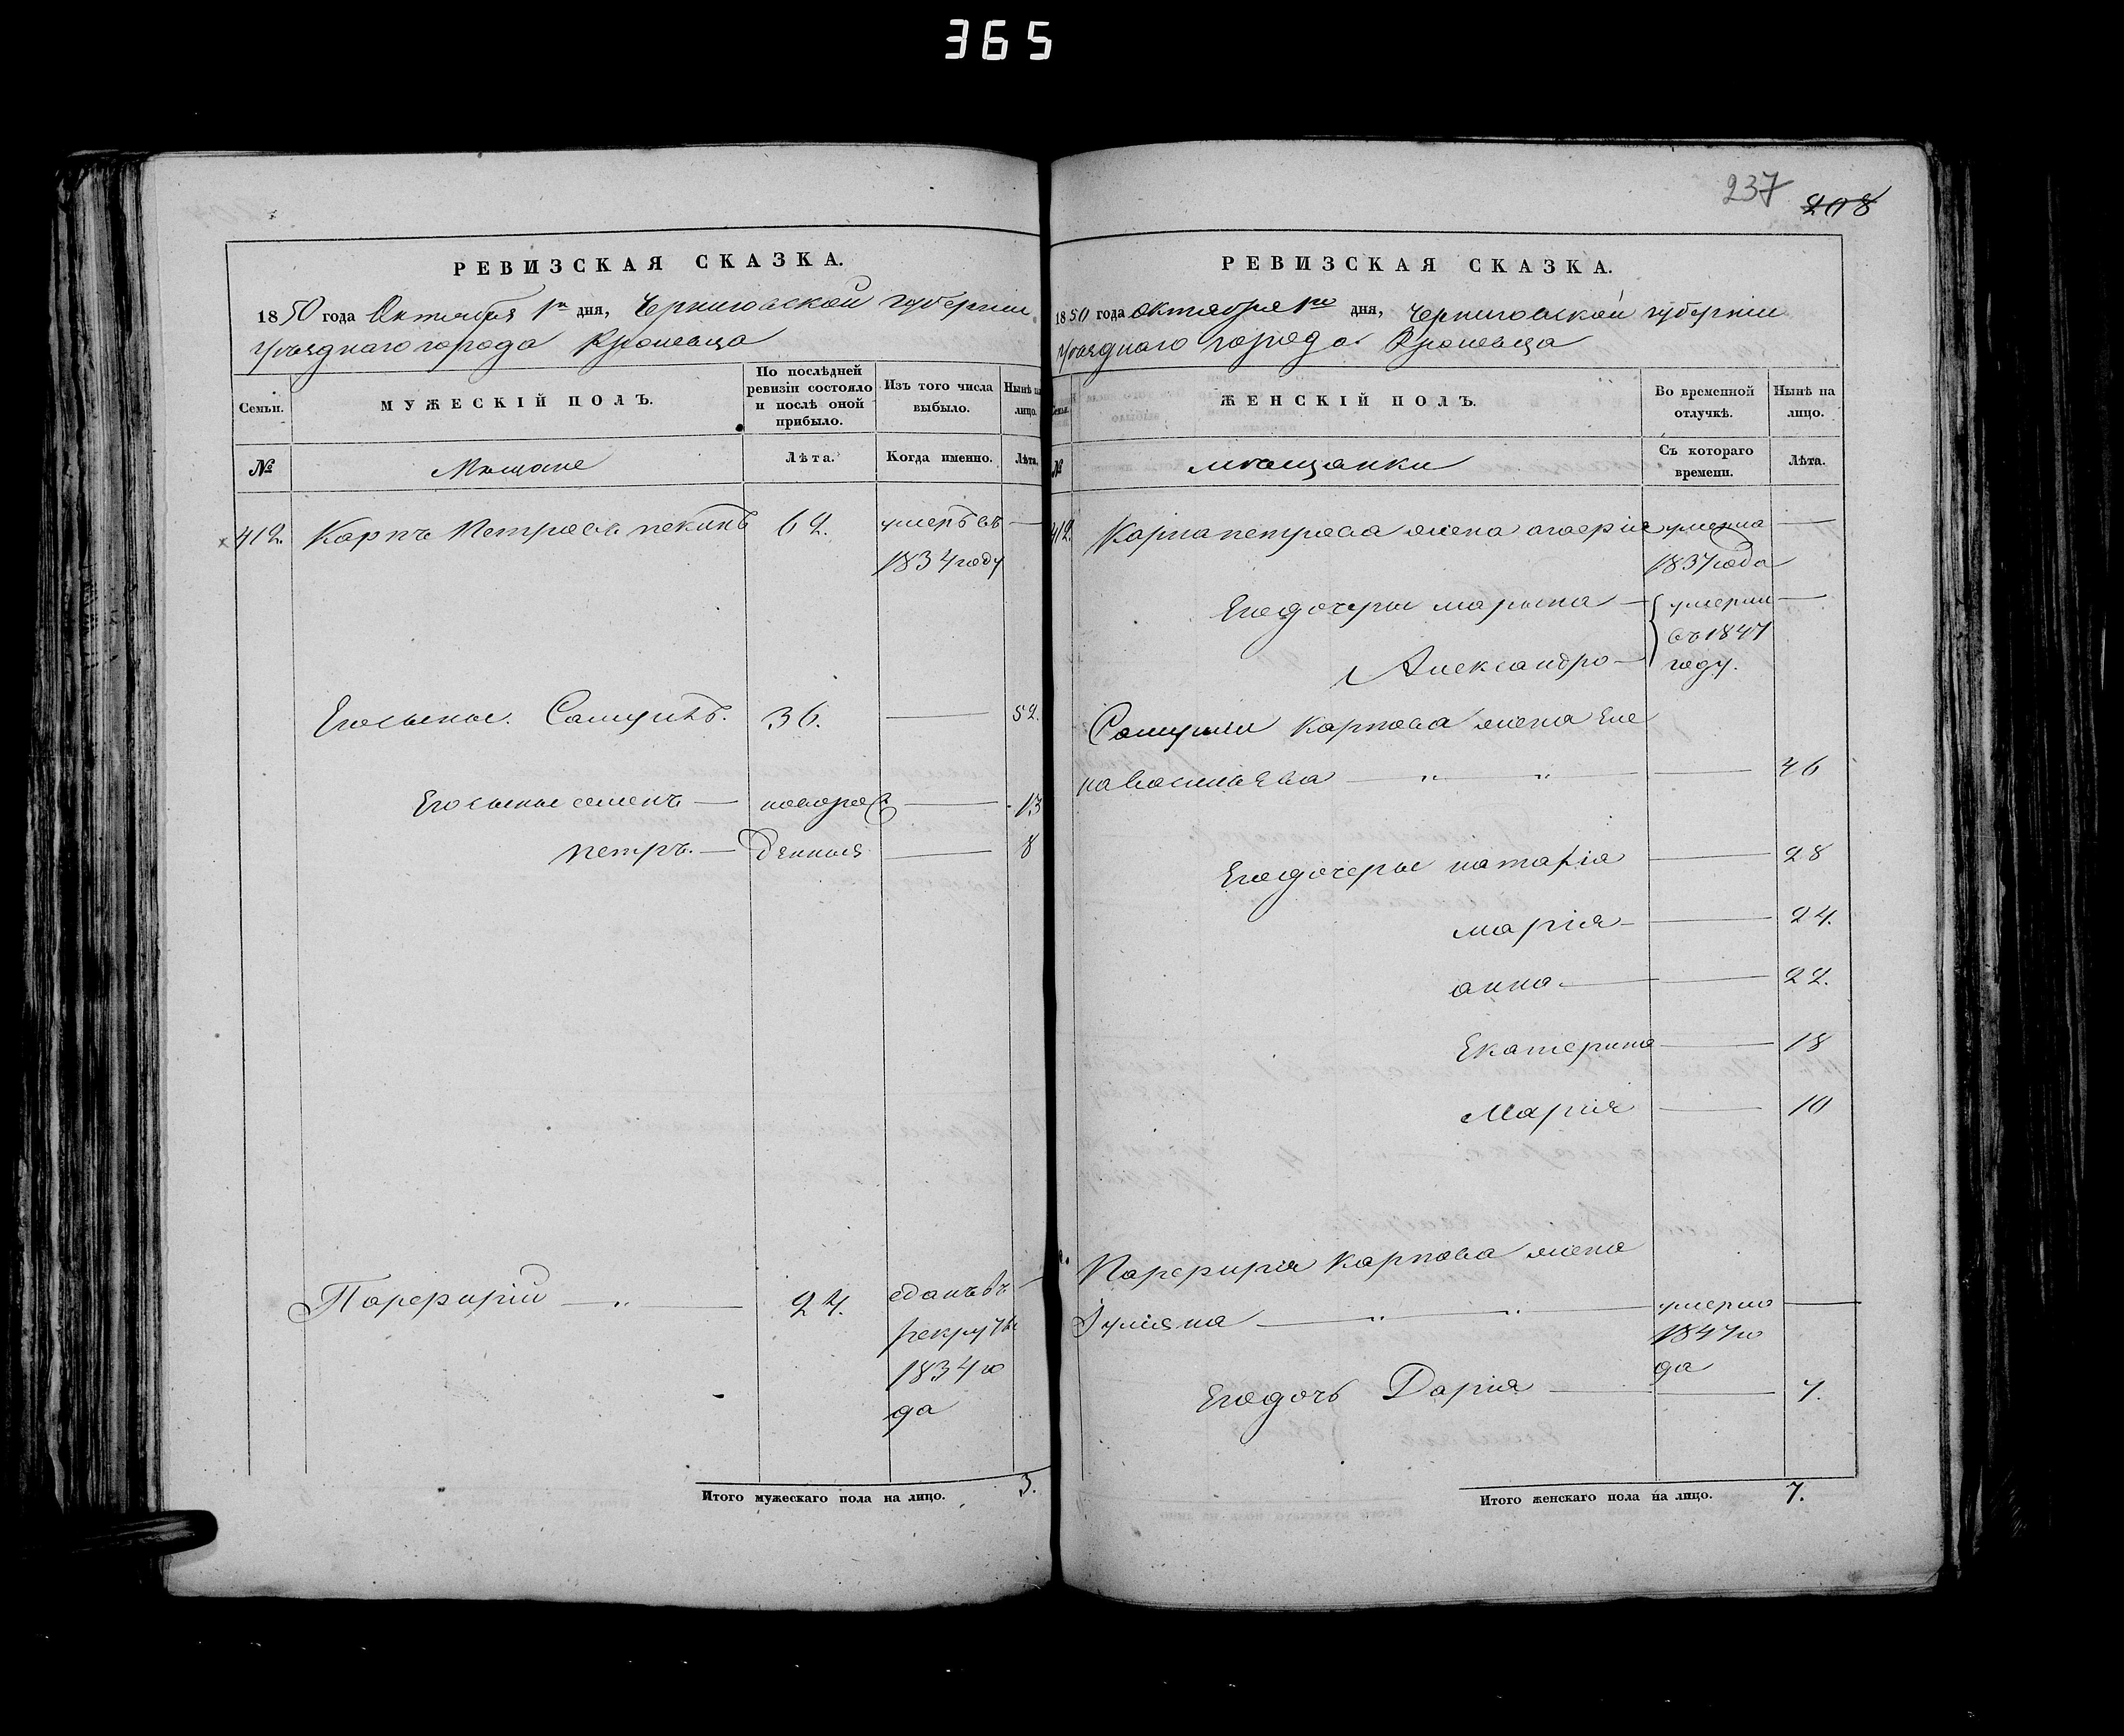 365
237
208
РЕВИЗСКАЯ СКАЗКА.
1850 года Октября 1го дня, Черниговской губернии
Уѣзднаго города Кролевца
Семьи.
МУЖЕСКІЙ ПОЛЪ.
По послѣдней ревизіи состояло и послѣ оной прибыло.
Изъ того числа выбыло.
Нынѣ на лицо.
№
Мѣщане
Лѣта.
Когда именно.
Лѣта.
412. Карпъ Петровъ 62. умеръ въ —
1834 году
Его сынъ. Самуилъ. 36. — 52.
Его сынъ семенъ — новорож — 13
петръ. — денныя — 8
Парфирій — „ — 24. сданъ въ —
рекруты
1834 го
да
Итого мужескаго пола на лицо. 3.
РЕВИЗСКАЯ СКАЗКА.
1850 года октября 1го дня, Черниговской губерніи
Уѣзднаго города Кролевца
Семьи.
ЖЕНСКІЙ ПОЛЪ.
Во временной отлучкѣ.
Нынѣ на лицо.
№
мѣщанки
Съ котораго времени.
Лѣта.
412. Карпа петрова жена умерла —
1837 года
Его дочеры марына — умерли —
въ 1847
Александра — году.
Самуили Карпова жена Еле
на васильева — „ — „ — 46
Его дочеры наталія — 28
марія — 24.
анна — 22.
Екатерина — 18
Марія — 10
Парфирія Карпова жена
Іуліяна — „ — „ — умерла —
1847 го
да
Его дочь Дарія — 7.
Итого женскаго пола на лицо. 7.